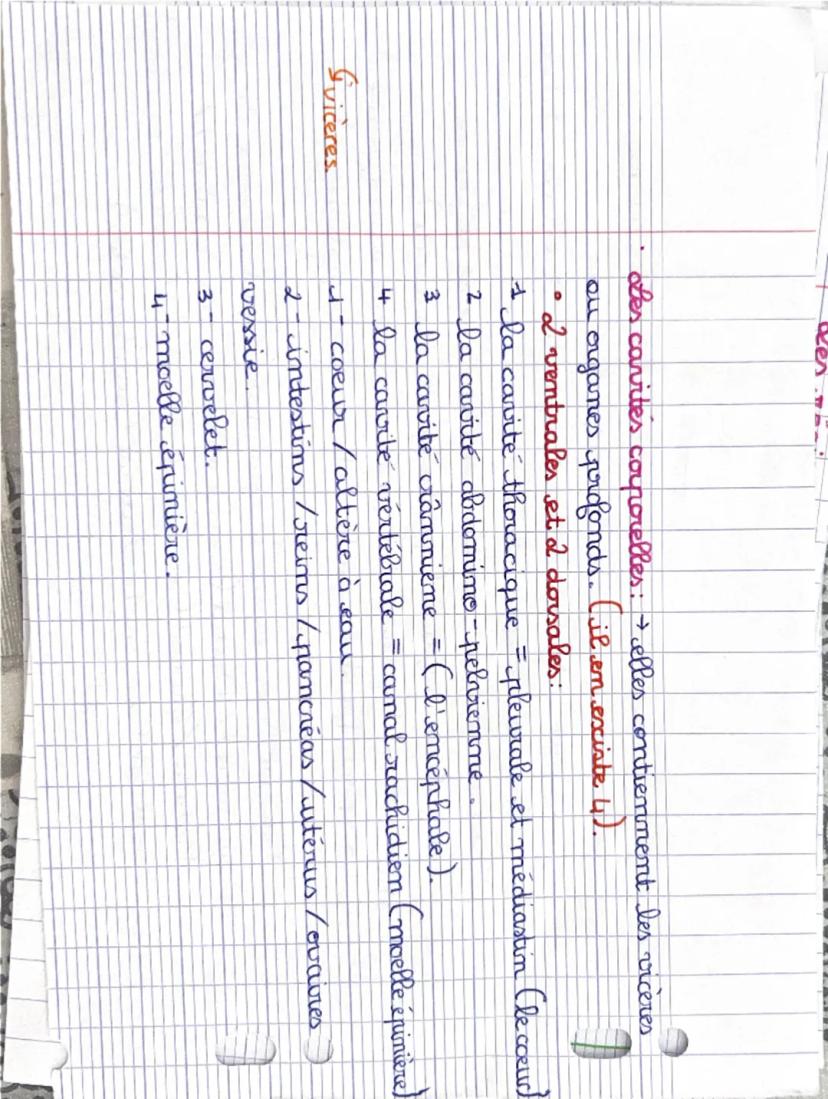 · Les cavités corporelles: → elles contiennent les vicères
ou organes profonds. (il en exciste 4).
• 2 ventrales et 2 dorsales:
1 la cavité thoracique = pleurale et médiastin (le coeur)
2 la cavité abdomino-pelvienne.
3 la cavité crânniene = (l'encéphale).
4 la cavité vértébrale = canal rachidien (moelle épinière)
1- coeur / altère à eau.
↳ vicères.
2- intestins / reins / pancréas / utérus / ovaires
vessie.
3- cervelet.
4- moelle épinière.